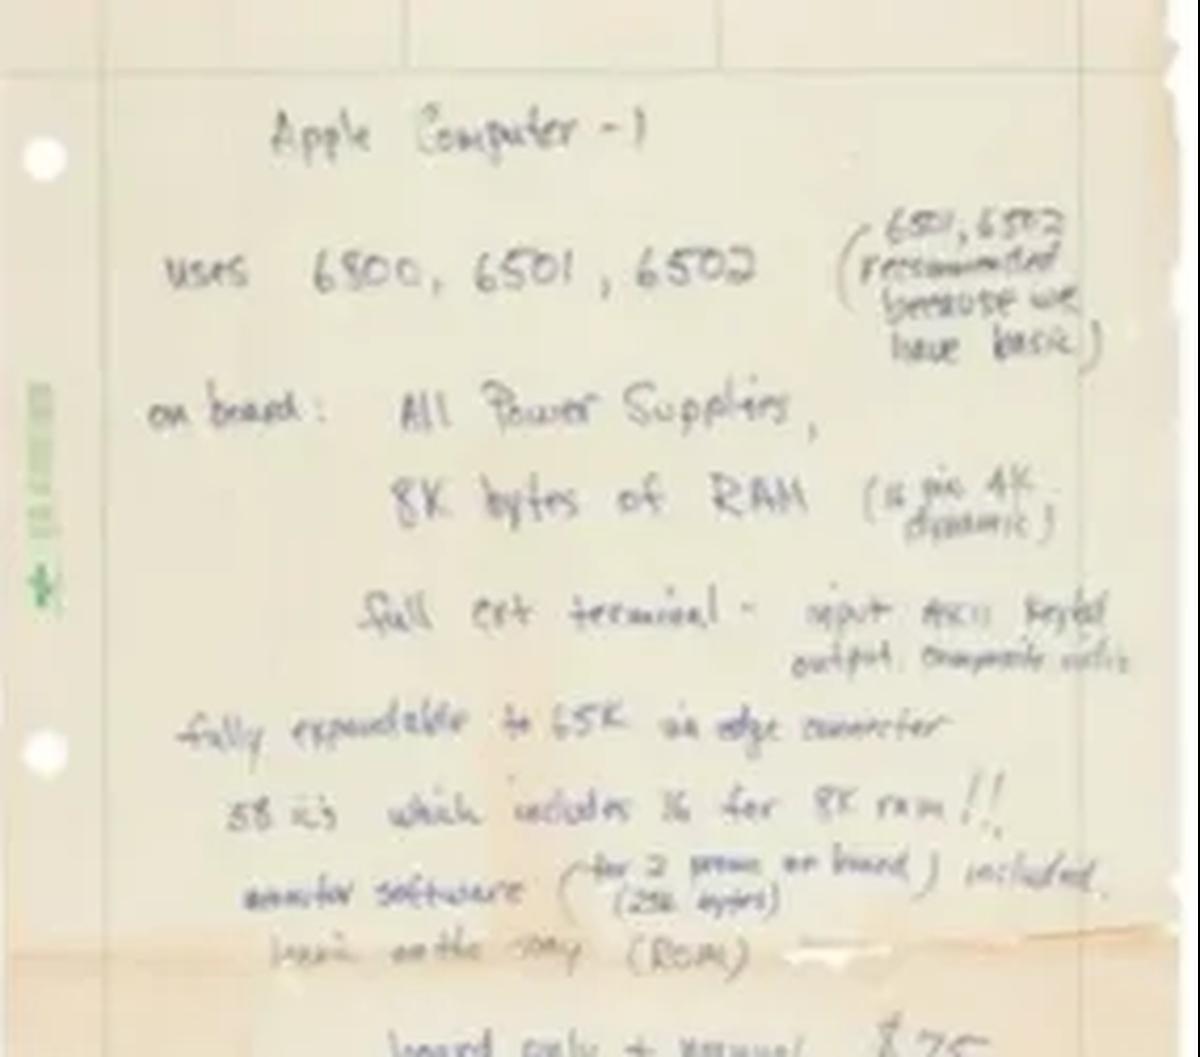 Apple Computer - 1
uses 6800, 6501, 6502 (6501, 6502
recommended
because we
have basic)
on board: All Power Supplies,
8K bytes of RAM (16 pin 4K
dynamic)
full crt terminal - input ASCII Keybd
output composite video
fully expandable to 65K via edge connector
58 ic's which includes 16 for 8K ram!!
monitor software (for 2 proms on board) included.
(256 bytes)
basic on the way (ROM)
board only + manual $75